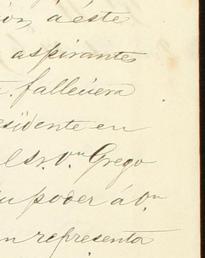 ión, á éste
aspirantes
. falleciera
esidente en
el Sr. Dn Grego
su poder á Dn
en representa